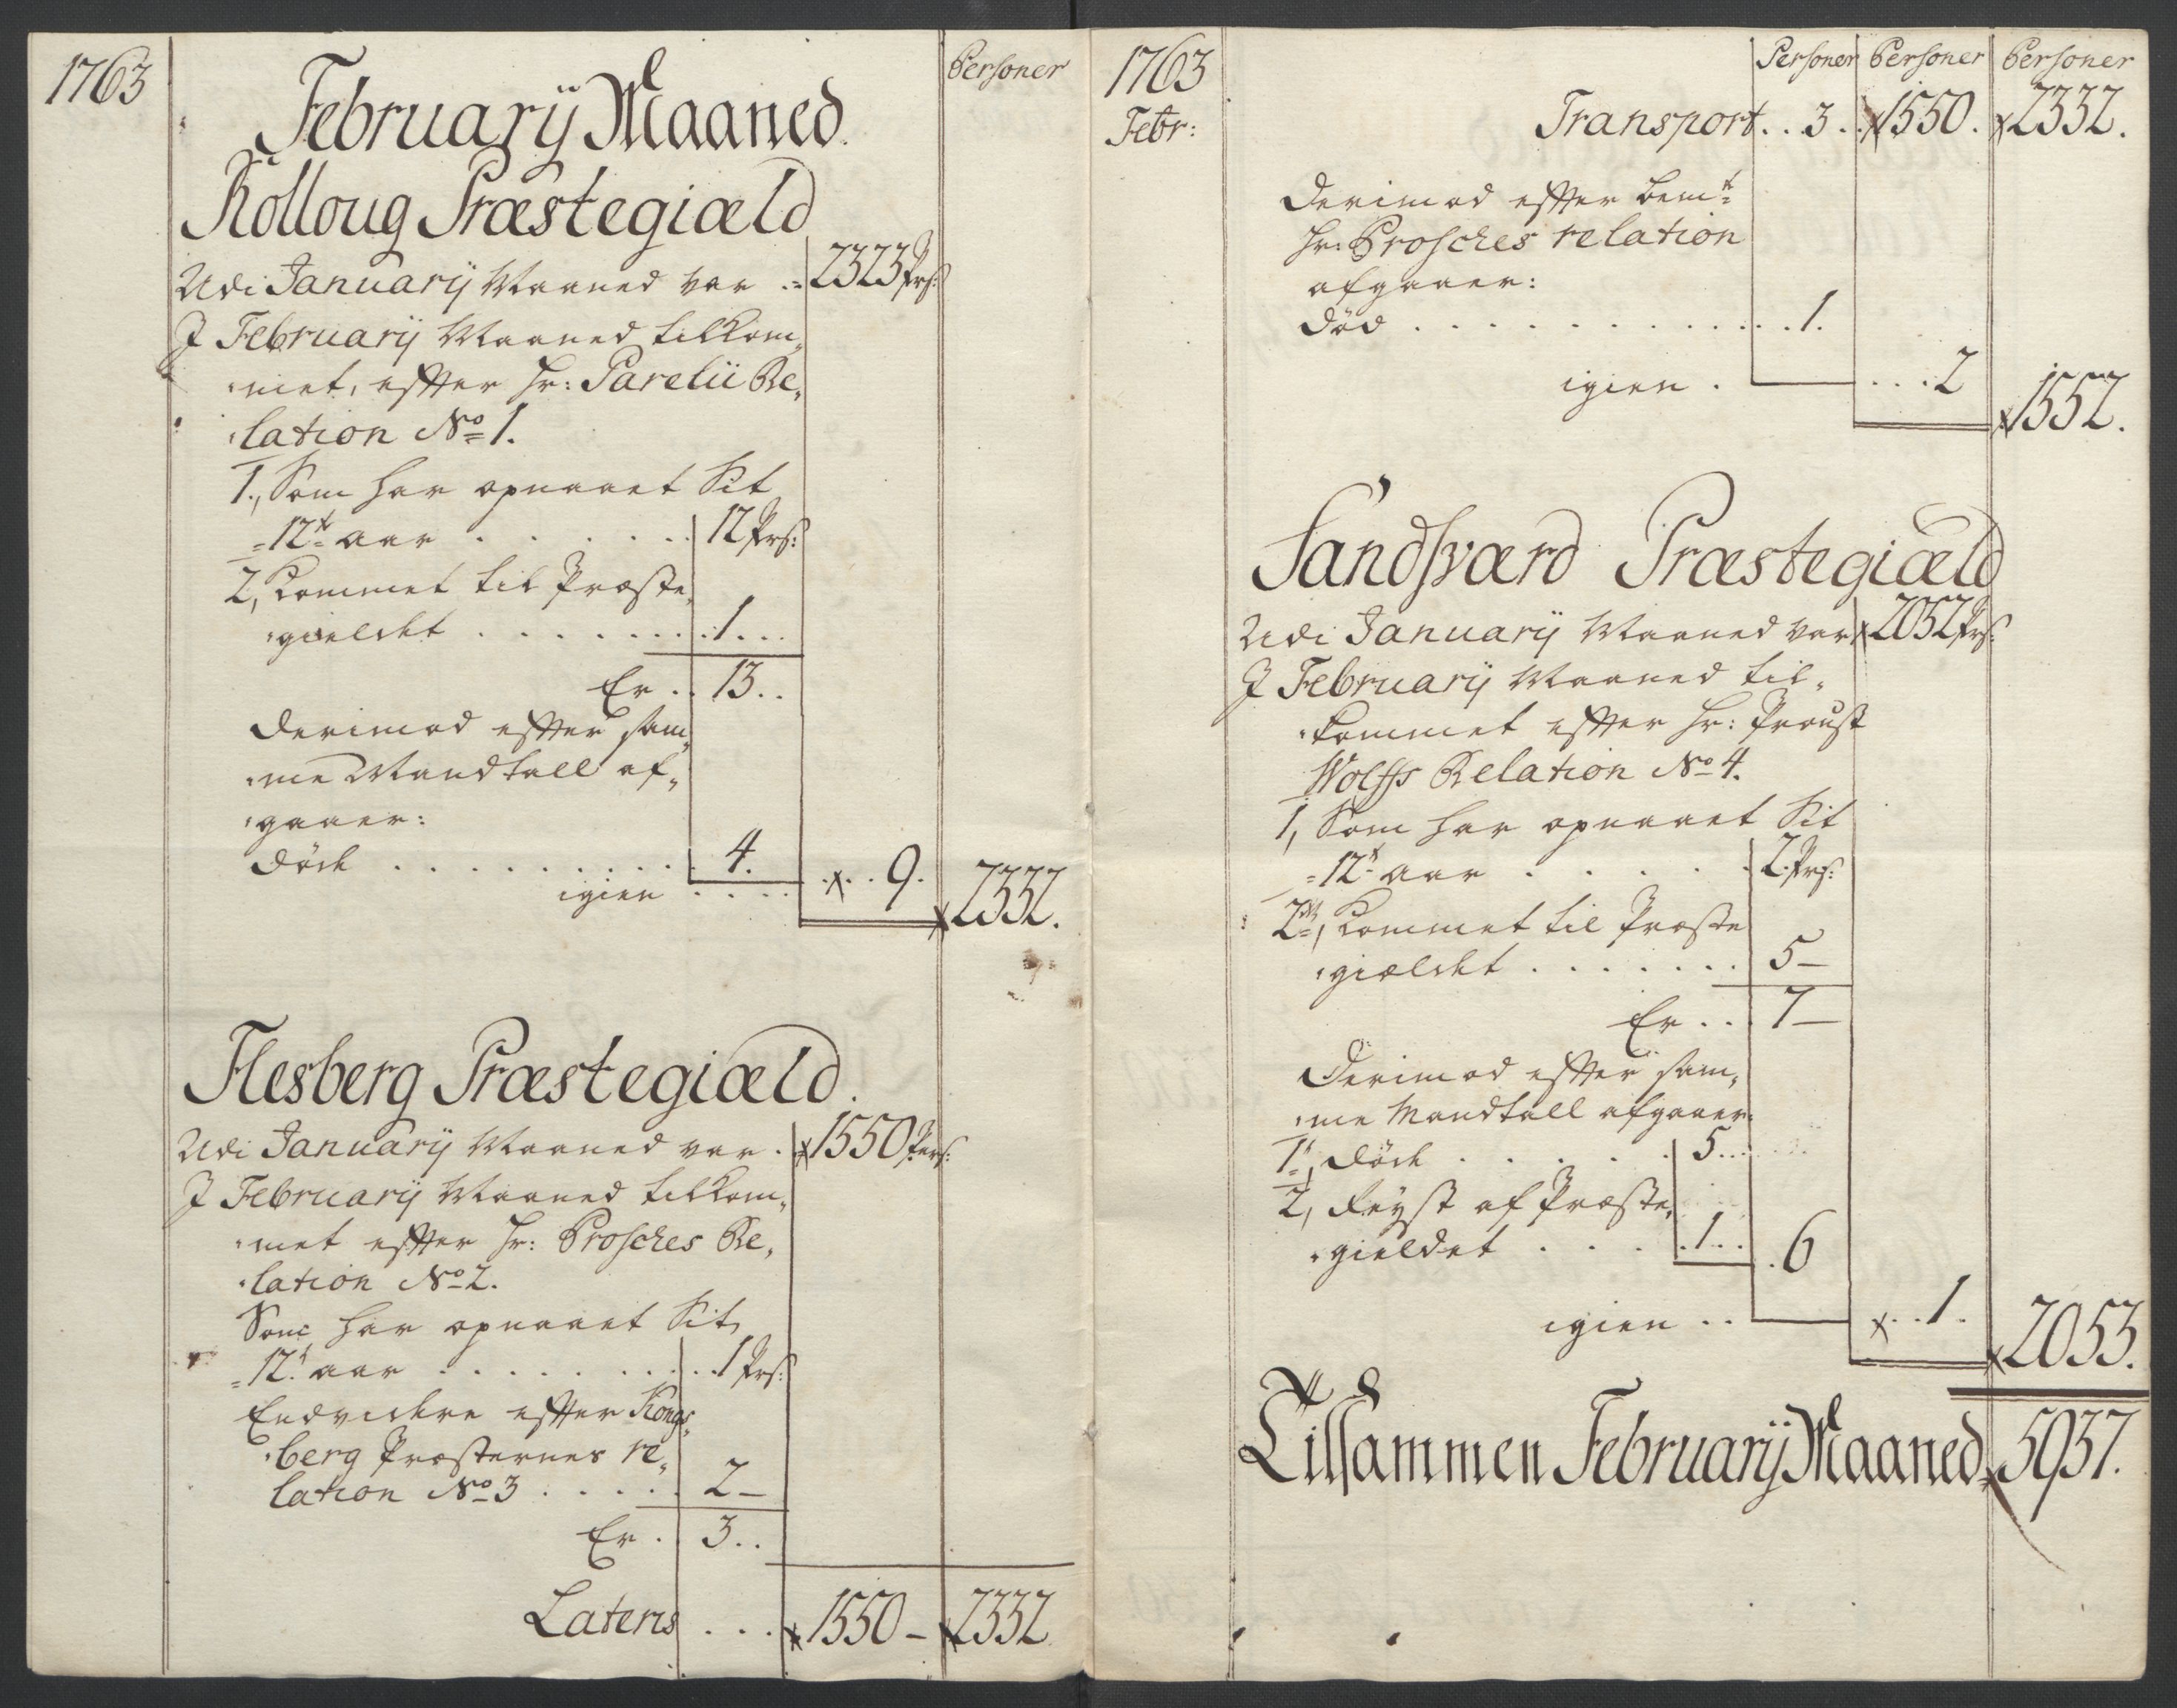 1763
Personer
Februarÿ Maaned.
Rolloug Præstegiæld
Udi Januarÿ Maaned var .. 2323 Prs:
J Februarÿ Maaned tilkom„
„met, efter Hr: Parelii Re„
„lation No 1.
1., Som har opnaaet Sit
12t aar . . . . . . 12 Prs:
2, Kommet til Præste„
„gieldet . . . . . . . 1...
Er . . 13..
Derimod efter sam„
„me Mandtall af„
„gaaer:
Døde . . . . . . . . . . 4.
igien . . . . x . . 9. x 2332.
Flesberg Præstegiæld.
Udi Januarÿ Maaned var . x 1550 Pers:
J Februarÿ Maaned tilkom„
„met efter Hr: Prosches Re„
„lation No 2.
Som har opnaaet Sit
12t aar . . . . . . . . . 1 Prs:
Endvidere efter Kongs„
„berg Præsternes re„
lation No 3 . . . . . 2 –
Er . 3..
Lateris . . . x 1550 – x 2332
1763
Febr:
Personer Personer Personer
Transport . . 3 . . x 1550. x 2332.
Derimod efter bemt
Hr: Prosches relation
afgaaer:
Død . . . . . . . . . . . . . 1.
igien . . . . 2 x 1552.
Sandsværd Præstegiæld
Udi Januarÿ Maaned var x 2052 Prs:
J Februarÿ Maaned til„
„kommet efter Hr: Proust
Wolffs Relation No 4.
1, Som har opnaaet Sit
12t aar . . . . . 2. Prs:
2, Kommet til Præste
„giældet . . . . . . . 5 –
Er . . . 7 –
Derimod efter sam„
„me Mandtall afgaaer.
1, Døde . . . . . 5...
2, Reyst af Præste„
„gieldet . . . . 1 . . . 6
igien . . x . . 1. x 2053.
Tilsammen Februarÿ Maaned x 5937.